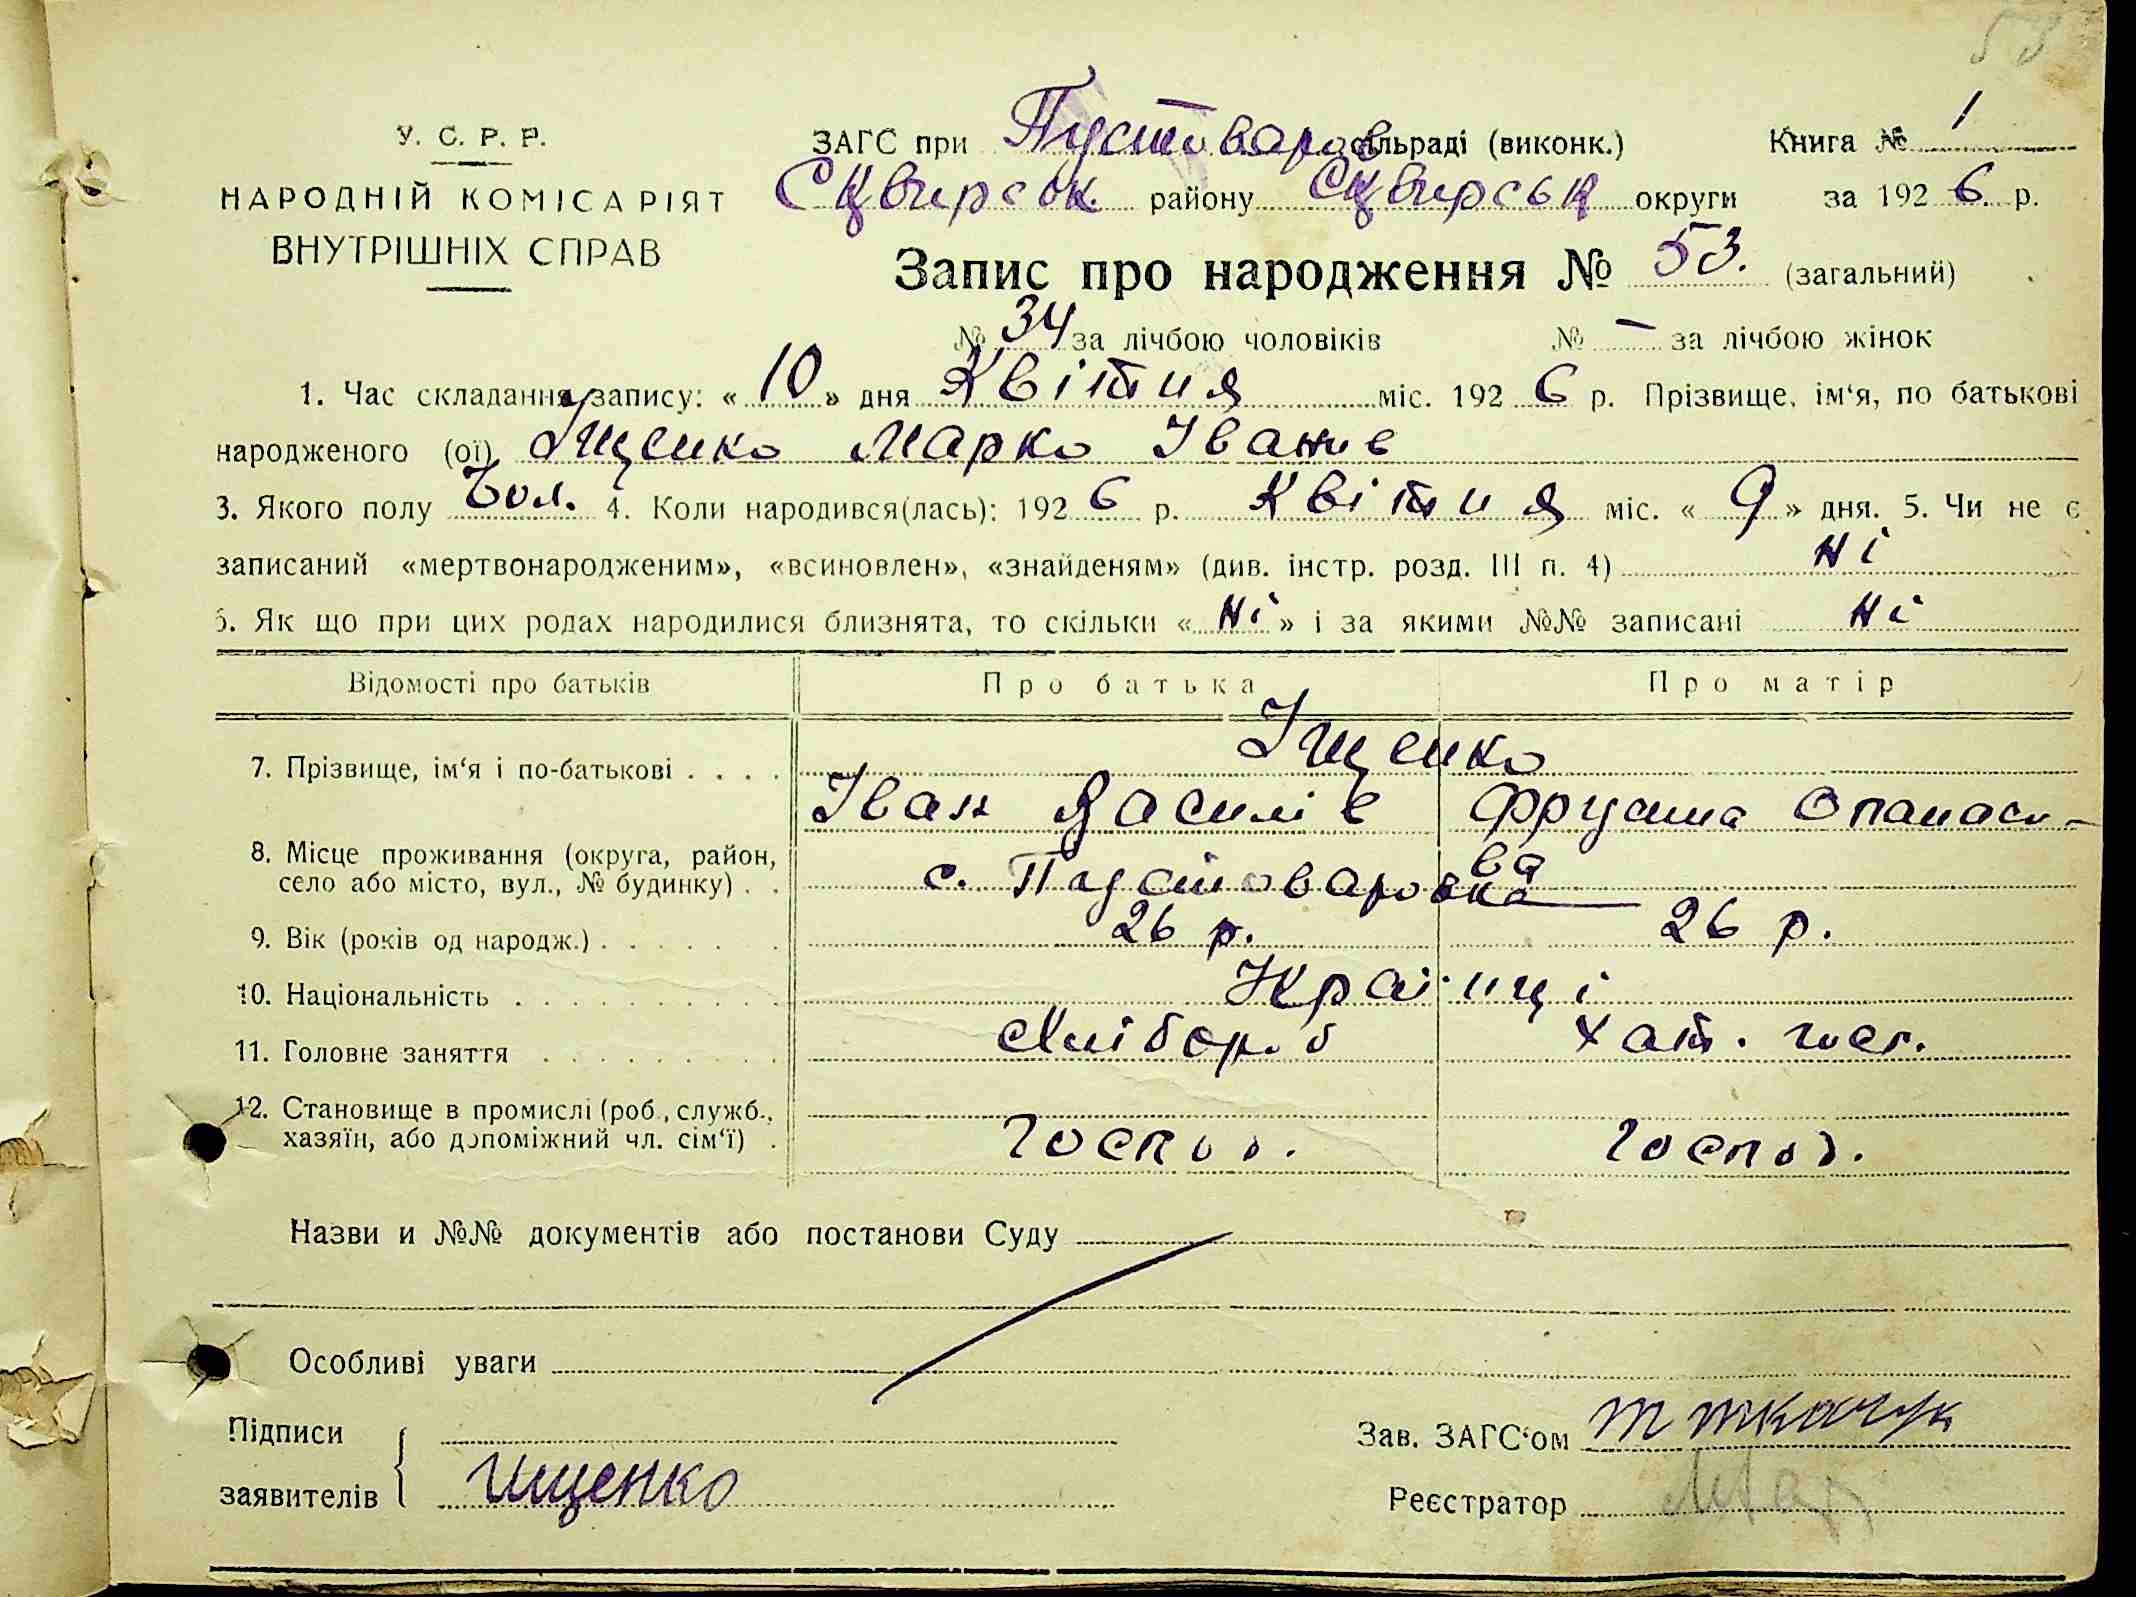 53
У. С. Р. Р.
НАРОДНІЙ КОМІСАРІЯТ
ВНУТРІШНІХ СПРАВ
ЗАГС при Пустоваров сільраді (виконк.) Книга № 1
Сквирськ району Сквирськ округи за 1926 р.
Запис про народження № 53. (загальний)
№ 34 за лічбою чоловіків № — за лічбою жінок
1. Час складання запису: « 10 » дня Квітня міс. 1926 р. Прізвище, ім'я, по батькові
народженого (ої) Іщенко Марко Іванів
3. Якого полу Чол. 4. Коли народився(лась): 1926 р. Квітня міс. « 9 » дня. 5. Чи не є
записаний «мертвонародженим», «всиновлен», «знайденям» (див. інстр. розд. III п. 4) ні
6. Як що при цих родах народилися близнята, то скільки « ні » і за якими №№ записані ні
Відомості про батьків Про батька Про матір
7. Прізвище, ім'я і по-батькові . . . . Іщенко
Іван Василів Фрусина Опанасо-
ва
8. Місце проживання (округа, район,
село або місто, вул., № будинку) . . с. Пустоваровка
9. Вік (років од народж.) . . . . . . 26 р. 26 р.
10. Національність . . . . . . . . . . Українці
11. Головне заняття . . . . . . . . . Хлібороб хат. госп.
12. Становище в промислі (роб., служб.,
хазяїн, або допоміжний чл. сім'ї) . господ. господ.
Назви и №№ документів або постанови Суду
Особливі уваги
Підписи
заявителів Ищенко
Зав. ЗАГС'ом Т Ткачук
Реєстратор